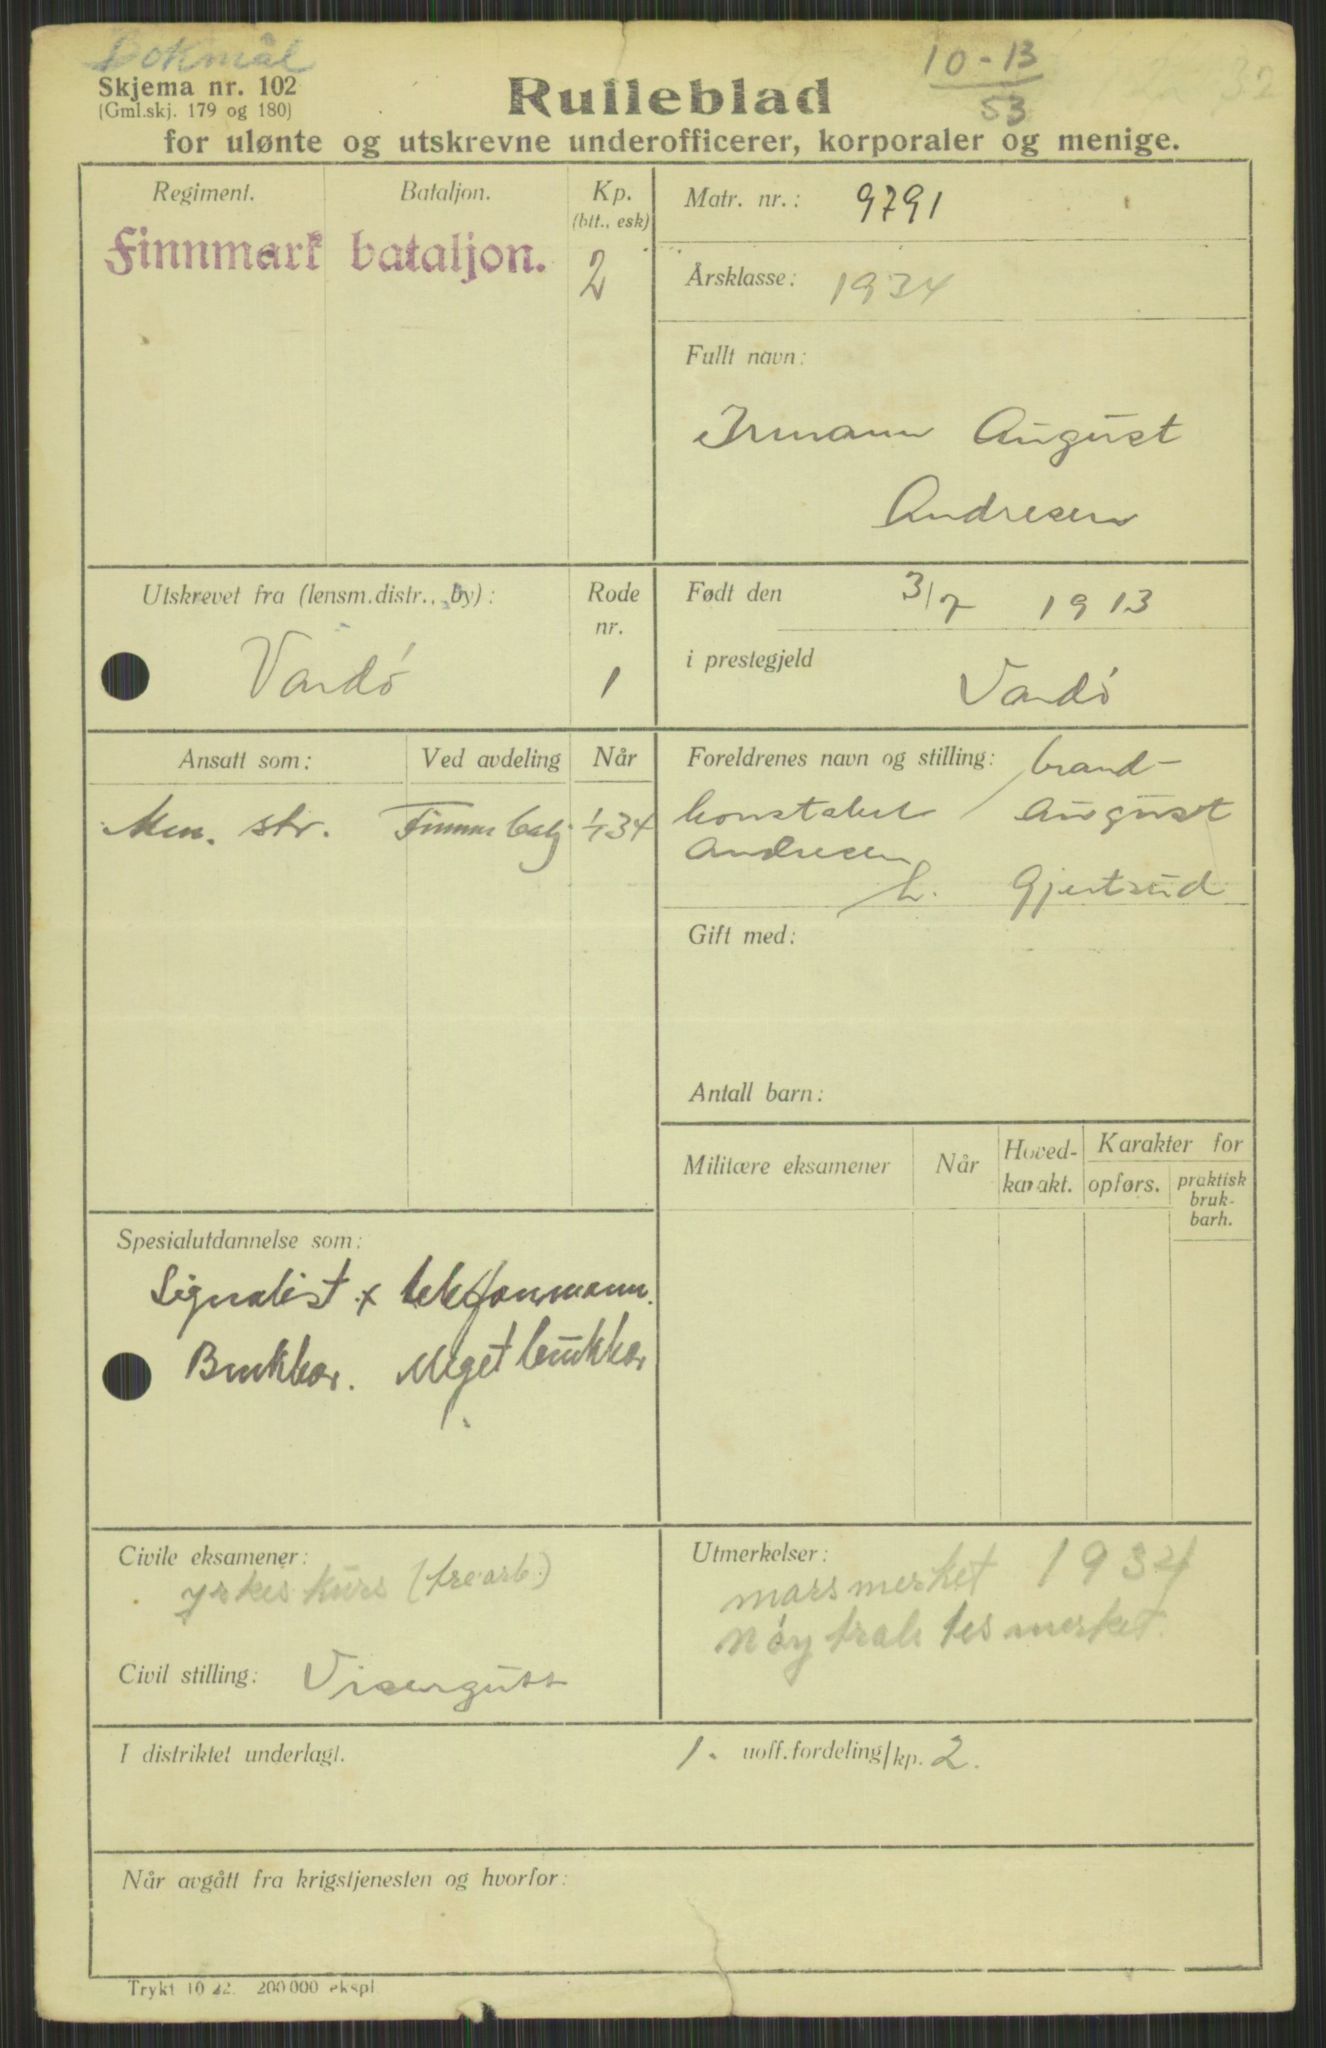 Bokmål
Skjema nr. 102
(Gml.skj. 179 og 180)
Rulleblad
10-13
53
for ulønte og utskrevne underofficerer, korporaler og menige.
Regiment. Bataljon. Kp.
(btt., esk)
Finnmark bataljon. 2
Matr. nr.: 9791
Årsklasse: 1934
Fullt navn:
Irmann August
Andresen
Utskrevet fra (lensm.distr., by): Rode
nr.
Vardö 1
Født den 3/7 1913
i prestegjeld Vardö
Ansatt som: Ved avdeling Når
Men. str. Finnm batj 1/7 34
Foreldrenes navn og stilling: brand-
konstabel August
Andresen
h. Gjertrud
Gift med:
Antall barn:
Militære eksamener Når Hoved-
karakt. Karakter for
opførs. praktisk
bruk-
barh.
Spesialutdannelse som:
Signalist x telefonmann.
Brukbar. Meget brukbar
Civile eksamener:
yrkeskurs (trearb.)
Civil stilling: Visergutt
Utmerkelser:
marsmerket 1934
nöytralitesmerket
I distriktet underlagt. 1. uoff.fordeling/kp. 2.
Når avgått fra krigstjenesten og hvorfor:
Trykt 10 22. 200 000 ekspl